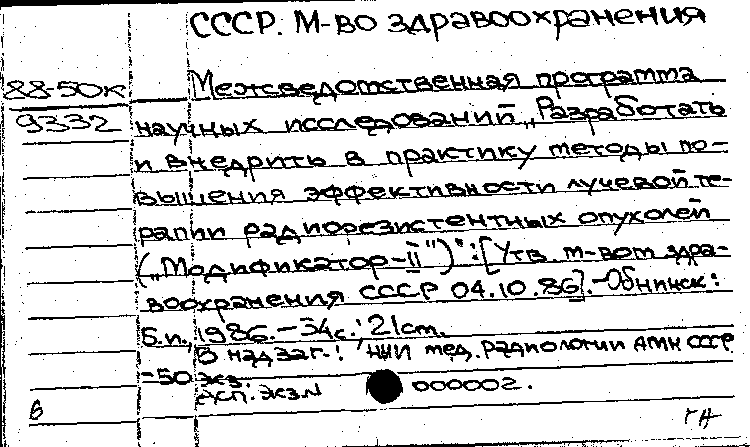 СССР. М-во здравоохранения
88-50к Межведомственная программа
9332 научных исследований „Разработать
и внедрить в практику методы по-
вышения эффективности лучевой те-
рапии радиорезистентных опухолей
(„Модификатор-II")": [Утв. м-вом здра-
воохранения СССР 04.10.86].-Обнинск:
Б.и., 1986.-34с.; 21см.
В надзаг.: НИИ мед. радиологии АМН СССР
-50 экз.
Исп. экз.N 000002.
б гн